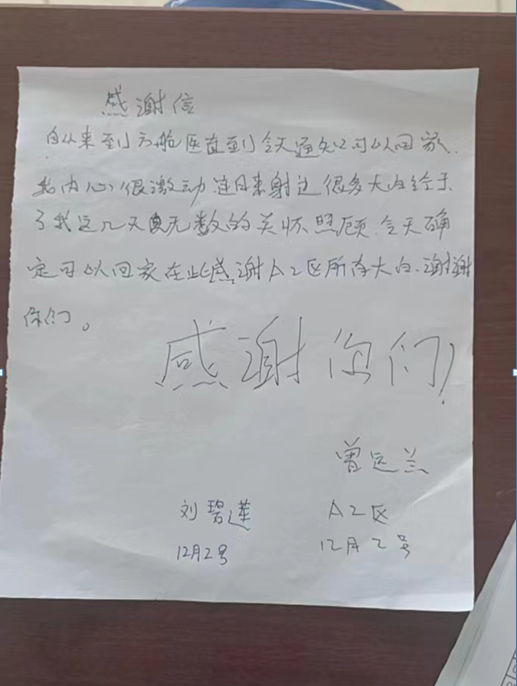 感谢信
自从来到方舱医直到今天通知可以回家.
我内心很激动 这日来射边很多大白给于
了我这几天无数的关怀照顾.今天确
定可以回家在此感谢A2区所有大白.谢谢
你们。
感谢你们!
曾运兰
刘碧莲 A2区
12月2号 12月2号